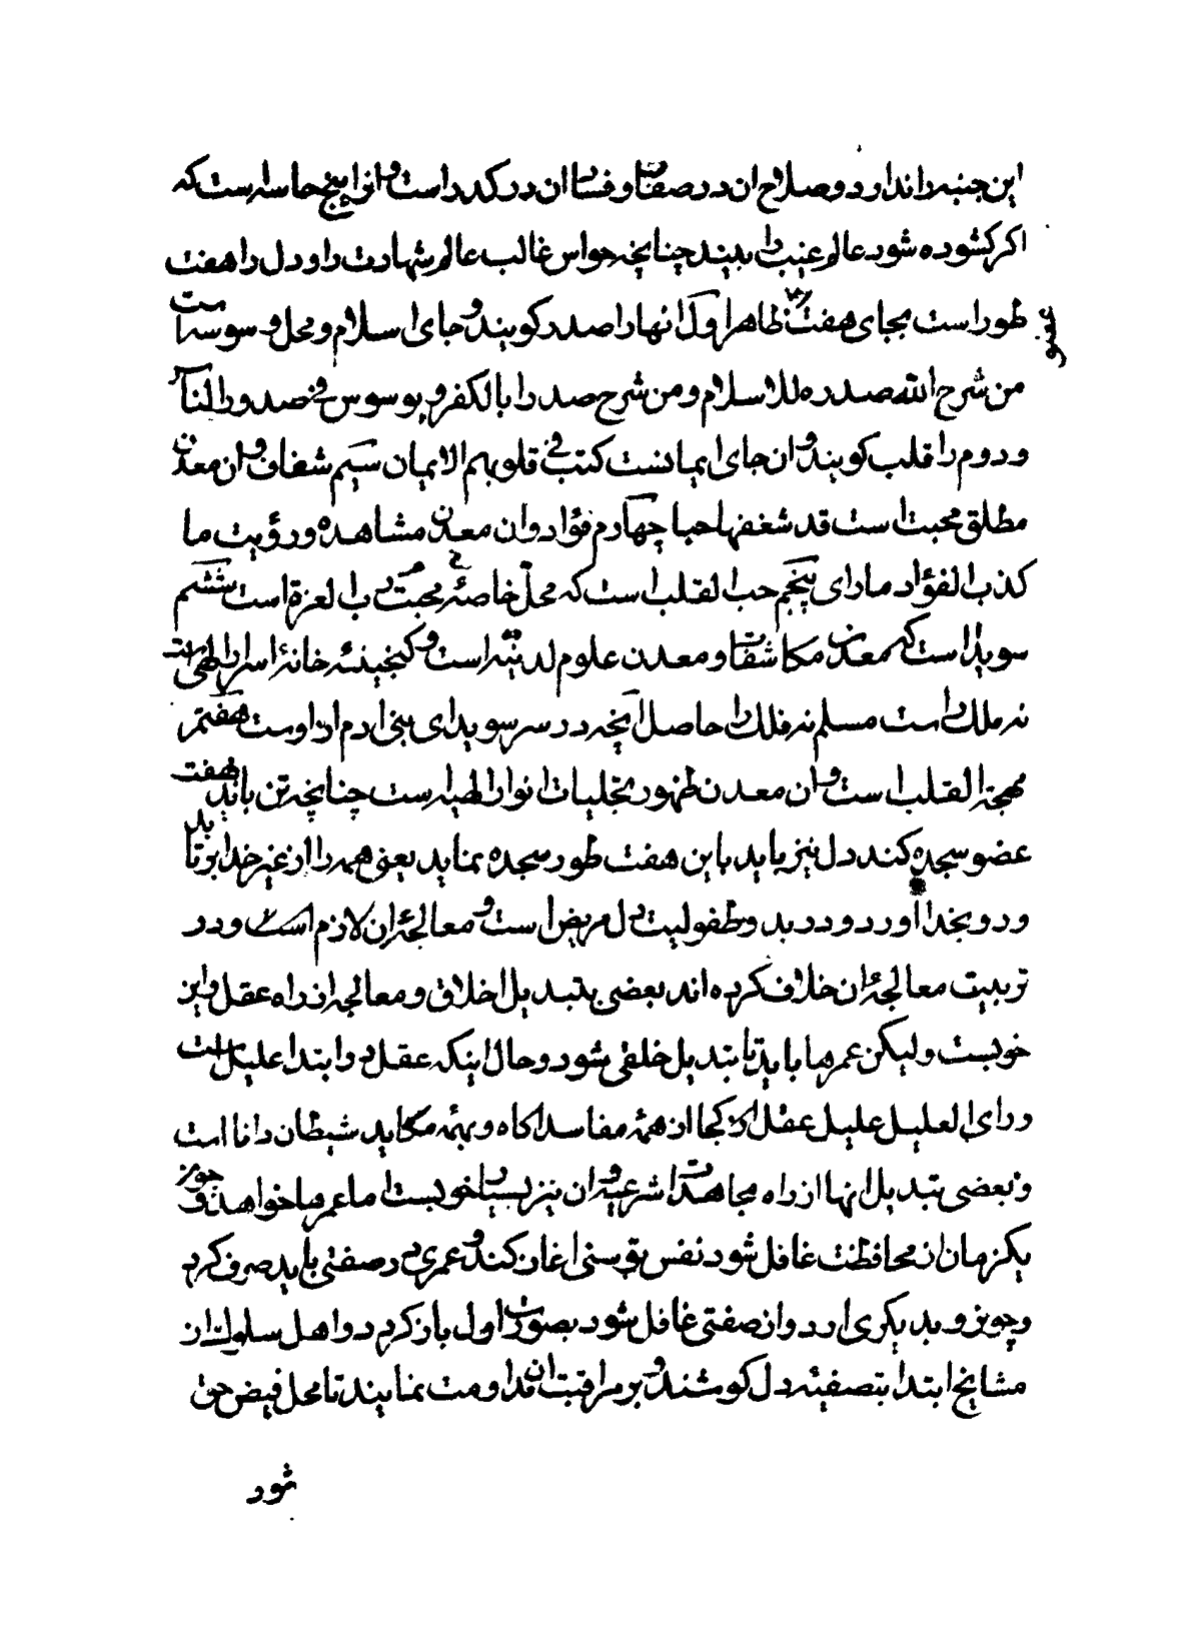 این جنبه را ندارد و صلاح ان در صفات و فسان ان در کدراست و انرا پنج حاسه است که
اکر کشوده شود عالم غیب را به بیند چنانچه حواس غالب عالم شهادت را و دل را هفت
طور است بجای هفت ظاهر اول انها را صدر کویند و جای اسلام و محل وسوسه است
عضو
من شرح الله صدره للاسلام و من شرح صدرا بالکفر و یوسوس فی صدور الناس
و دوم را قلب کویند و ان جای ایمانست کتب فی قلوبهم الایمان سیم شغاف و ان معدن
مطلق محبت است قد شغفها حبا چهارم فؤاد و ان معدن مشاهده و رؤیت ما
کذب الفؤاد ما رای پنجم حب القلب است که محل خاصهٔ محبت رب العزة است ششم
سویدا است که معدن مکاشفات و معدن علوم لدنیه است و کنجینهٔ خانهٔ اسرار الهی است
نه ملک را است مسلم نه فلک را حاصل آنچه در سر سویدای بنی ادم ازاوست هفتم
مهجة القلب است و ان معدن ظهور تجلیات انوار الهیه است چنانچه تن باید بهفت
عضو سجده کند دل نیز باید باین هفت طور سجده نماید یعنی همه را از غیر خدا برتابد
و رو بخدا آورد و در بدو طفولیت دل مریض است و معالجهٔ ان لازم است و در
تربیت معالجهٔ ان خلاف کرده اند بعضی بتبدیل اخلاق و معالجه ان راه عقل و این
خوبست ولیکن عمرها باید تا تبدیل خلقی شود و حال اینکه عقل در ابتدا علیل است
ورای العلیل علیل عقل از کجا از همهٔ مفاسد اکاه و بهمهٔ مکاید شیطان دانا است
و بعضی بتبدیل انها از راه مجاهدات شرعیه و ان نیز بسیار خوبست اما عمرها خواهد و چون
یکزمان از محافظت غافل شود نفس توسنی اغاز کند و عمری در صفتی باید صرف کرد
و چون رو بدیکری ارد و از صفتی غافل شود بصورت اول باز کردد و اهل سلوک از
مشایخ ابتدا بتصفیهٔ دل کوشند و بر مراقبت ان مداومت نمایند تا محل فیض حق
شود